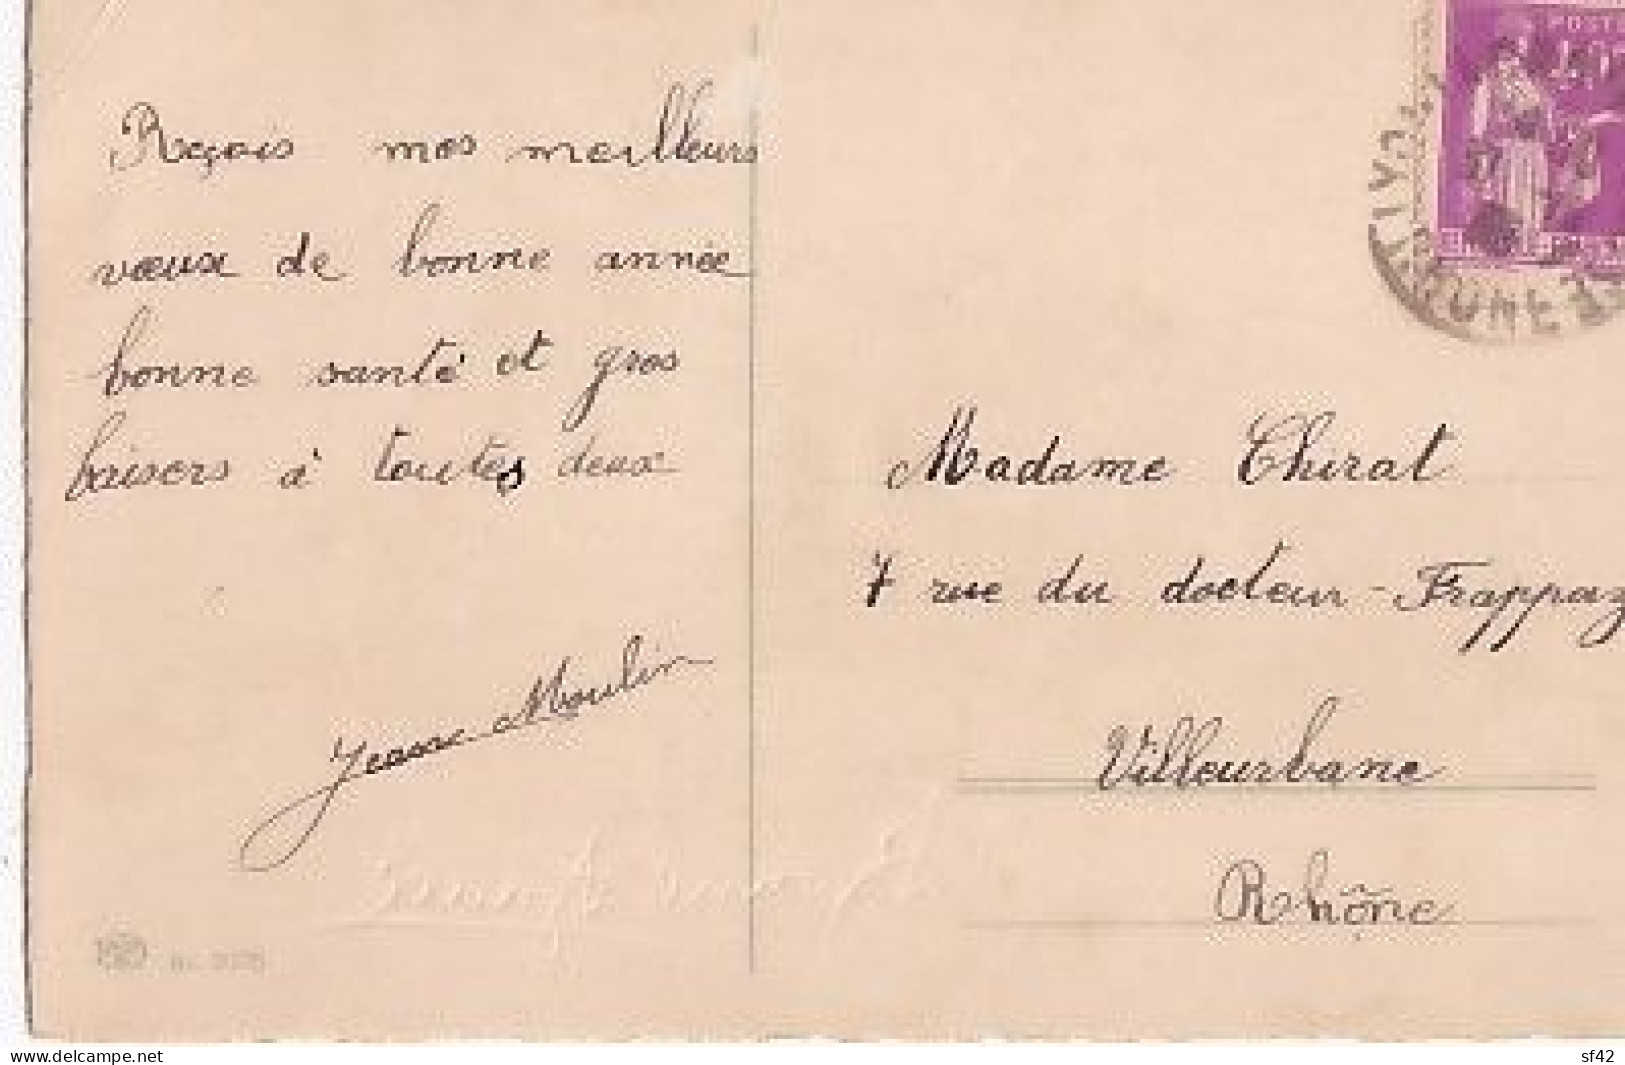 Reçois mes meilleurs
vœux de bonne année
bonne santé et gros
baisers à toutes deux
Jeanne Moulin
POSTE
Madame Chirat
7 rue du docteur-Frappaz
Villeurbane
Rhône
www.delcampe.net
sf42